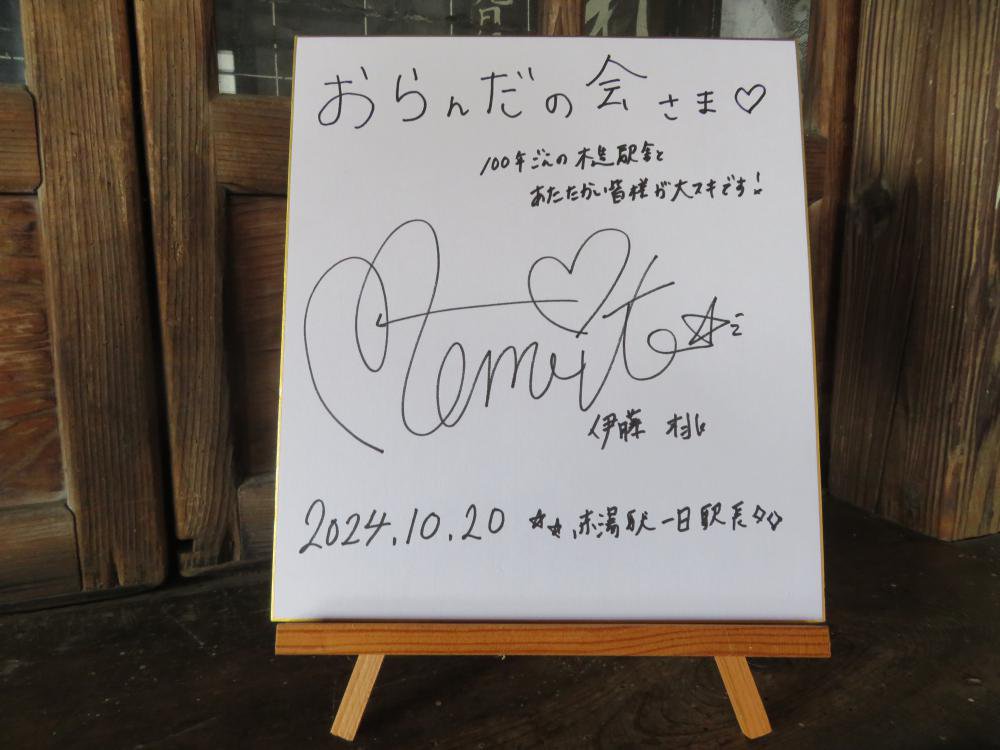 おらんだの会さま♡
100年ごえの木造駅舎と
あたたかい皆様が大スキです!
Momo Ito☆ミ
伊藤 桃
2024.10.20 ☆☆赤湯駅一日駅長◇◇